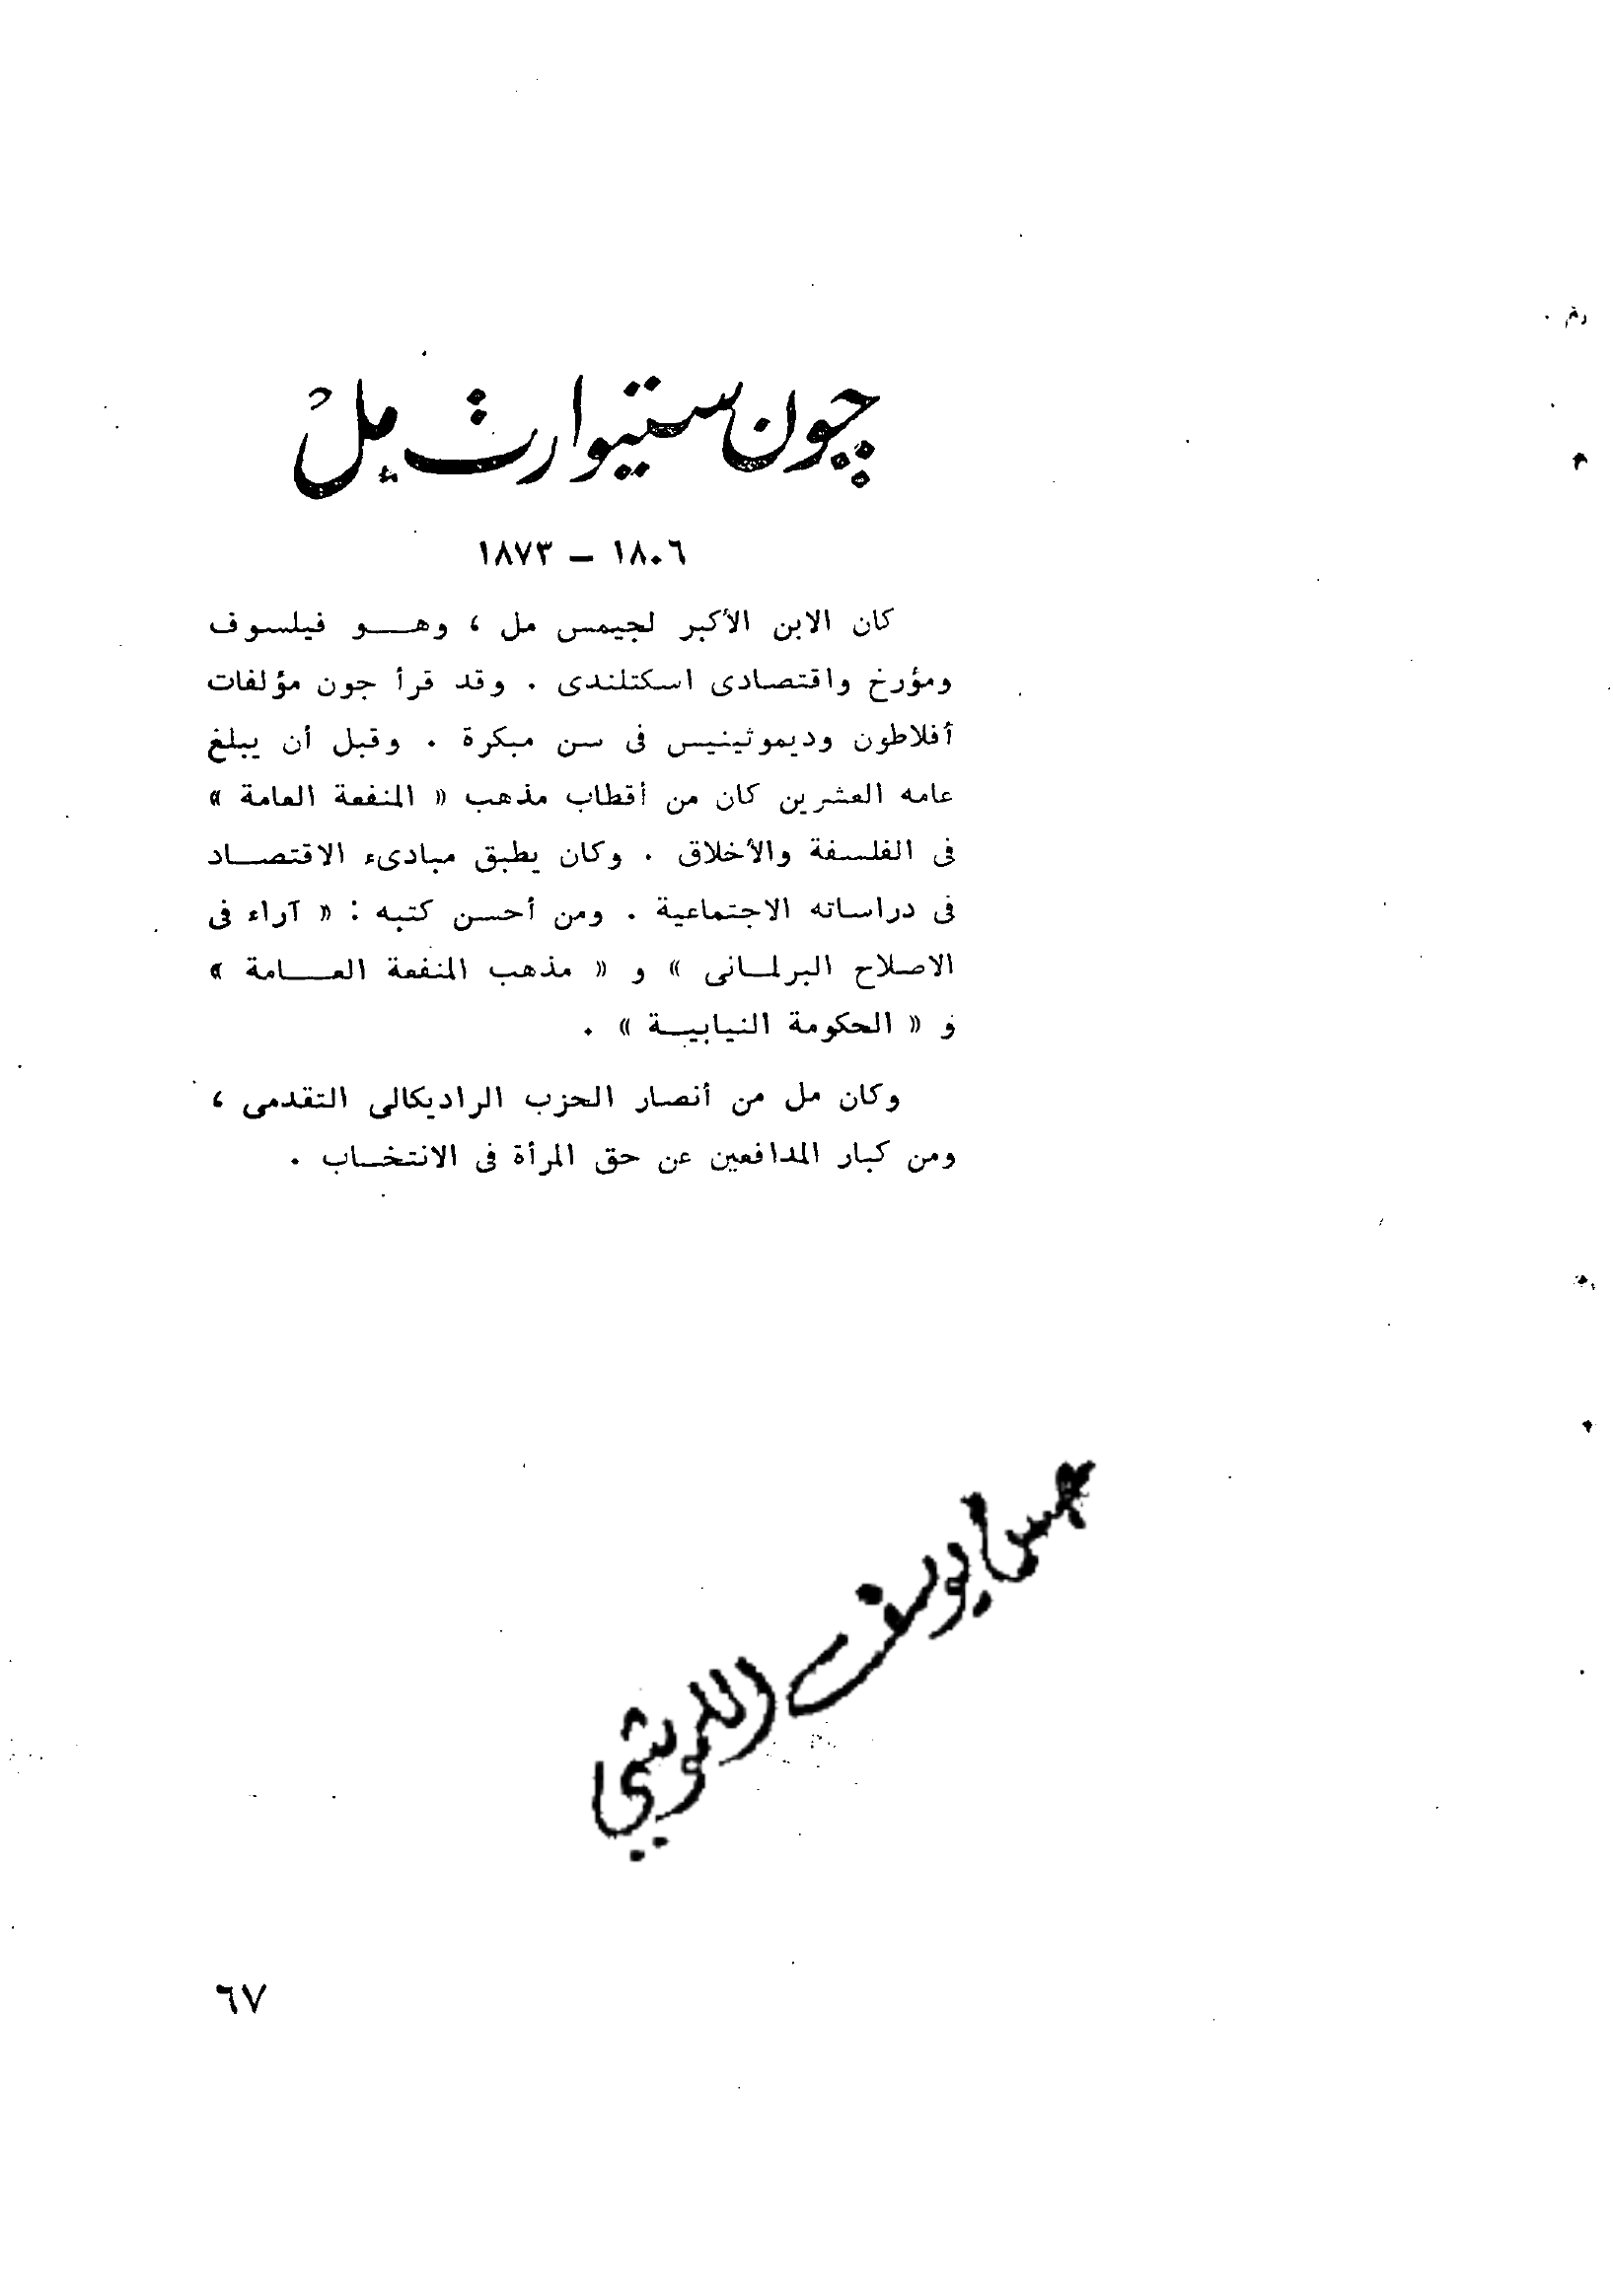 چون ستيوارت مل
١٨٠٦ – ١٨٧٣
كان الابن الأكبر لجيمس مل ، وهو فيلسوف
ومؤرخ واقتصادى اسكتلندى . وقد قرأ جون مؤلفات
أفلاطون وديموثينيس فى سن مبكرة . وقبل أن يبلغ
عامه العشرين كان من أقطاب مذهب « المنفعة العامة »
فى الفلسفة والأخلاق . وكان يطبق مبادىء الاقتصاد
فى دراساته الاجتماعية . ومن أحسن كتبه : « آراء فى
الاصلاح البرلمانى » و « مذهب المنفعة العامة »
و « الحكومة النيابية » .
وكان مل من أنصار الحزب الراديكالى التقدمى ،
ومن كبار المدافعين عن حق المرأة فى الانتخاب .
يوسف
٦٧